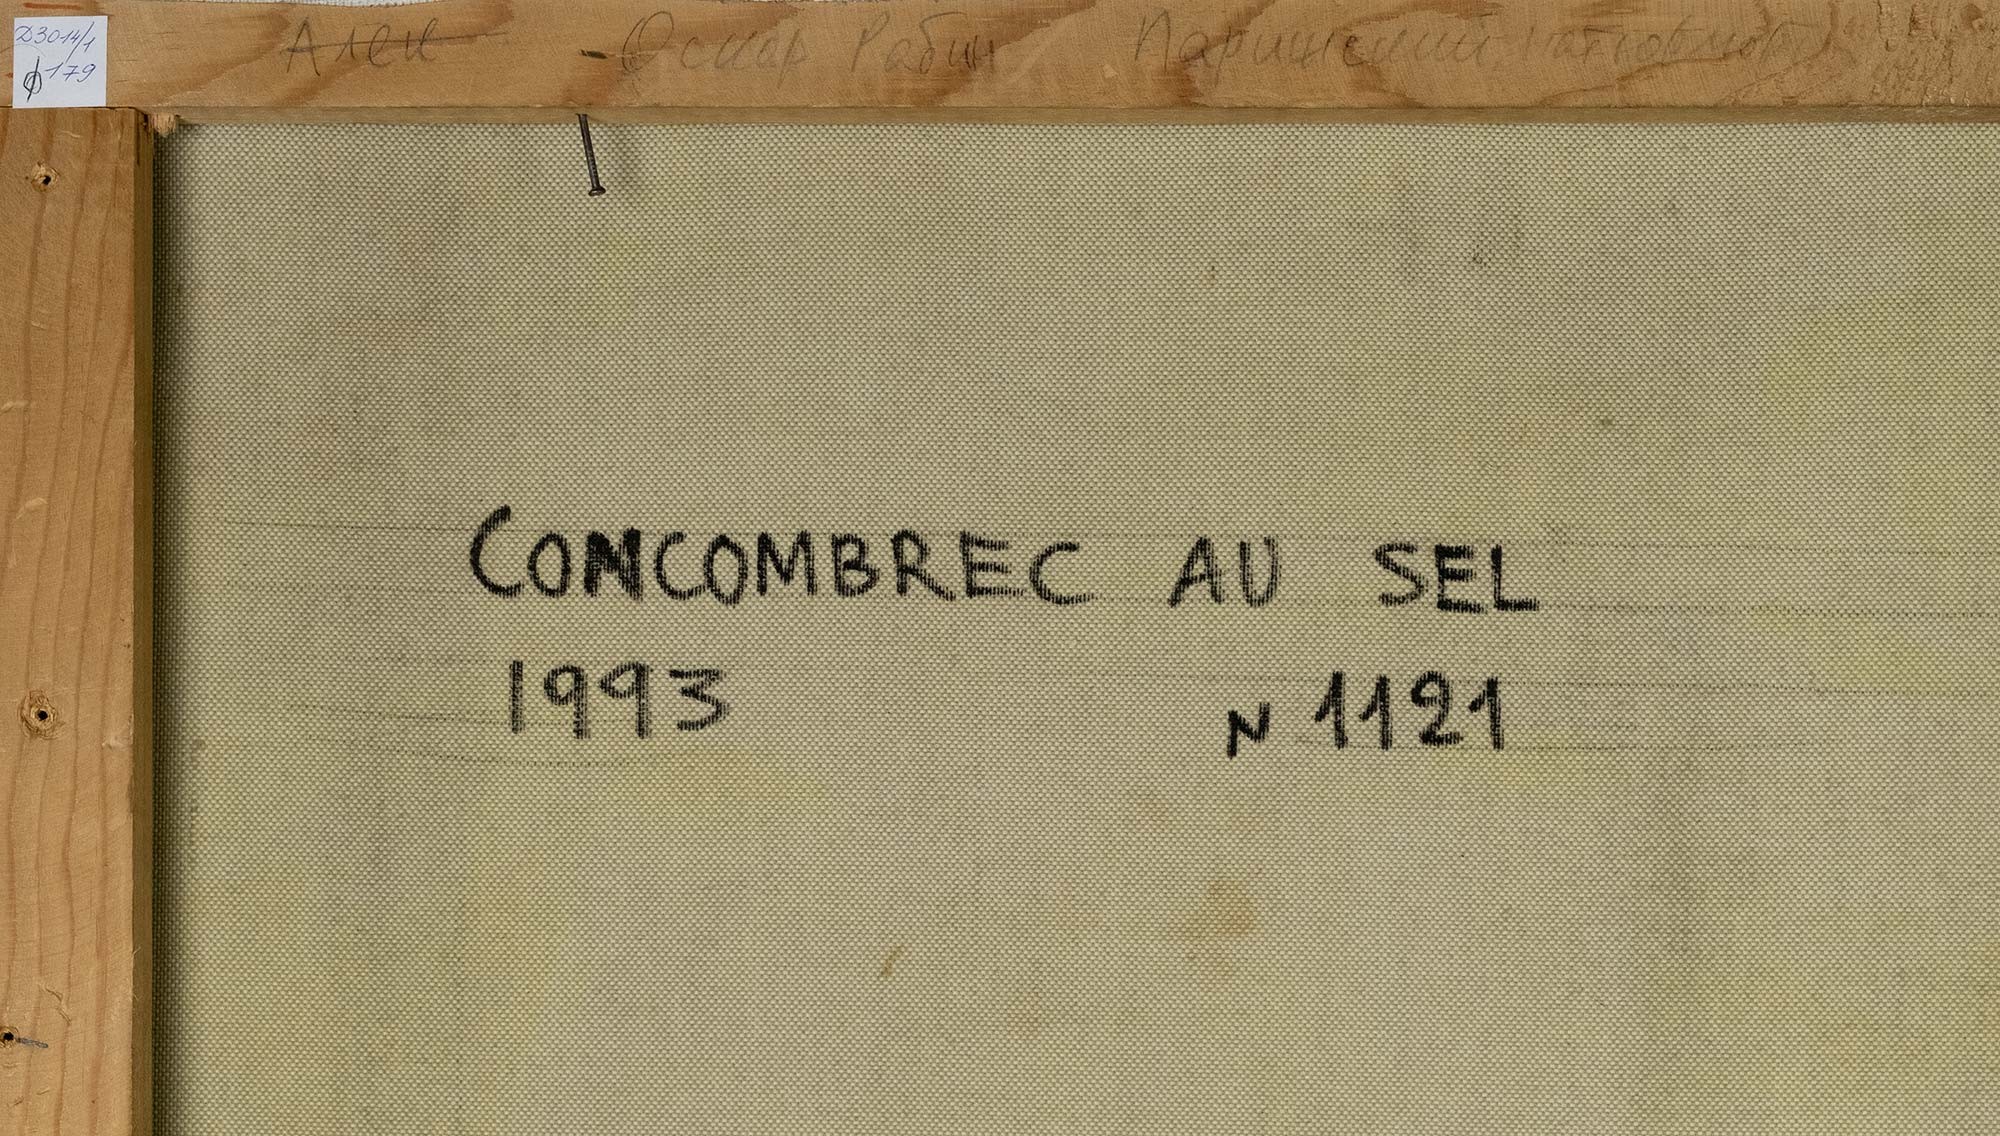 Д3014/1
ф 179
Алек Оскар Рабин Парижский натюрморт
CONCOMBREC AU SEL
1993 N 1121